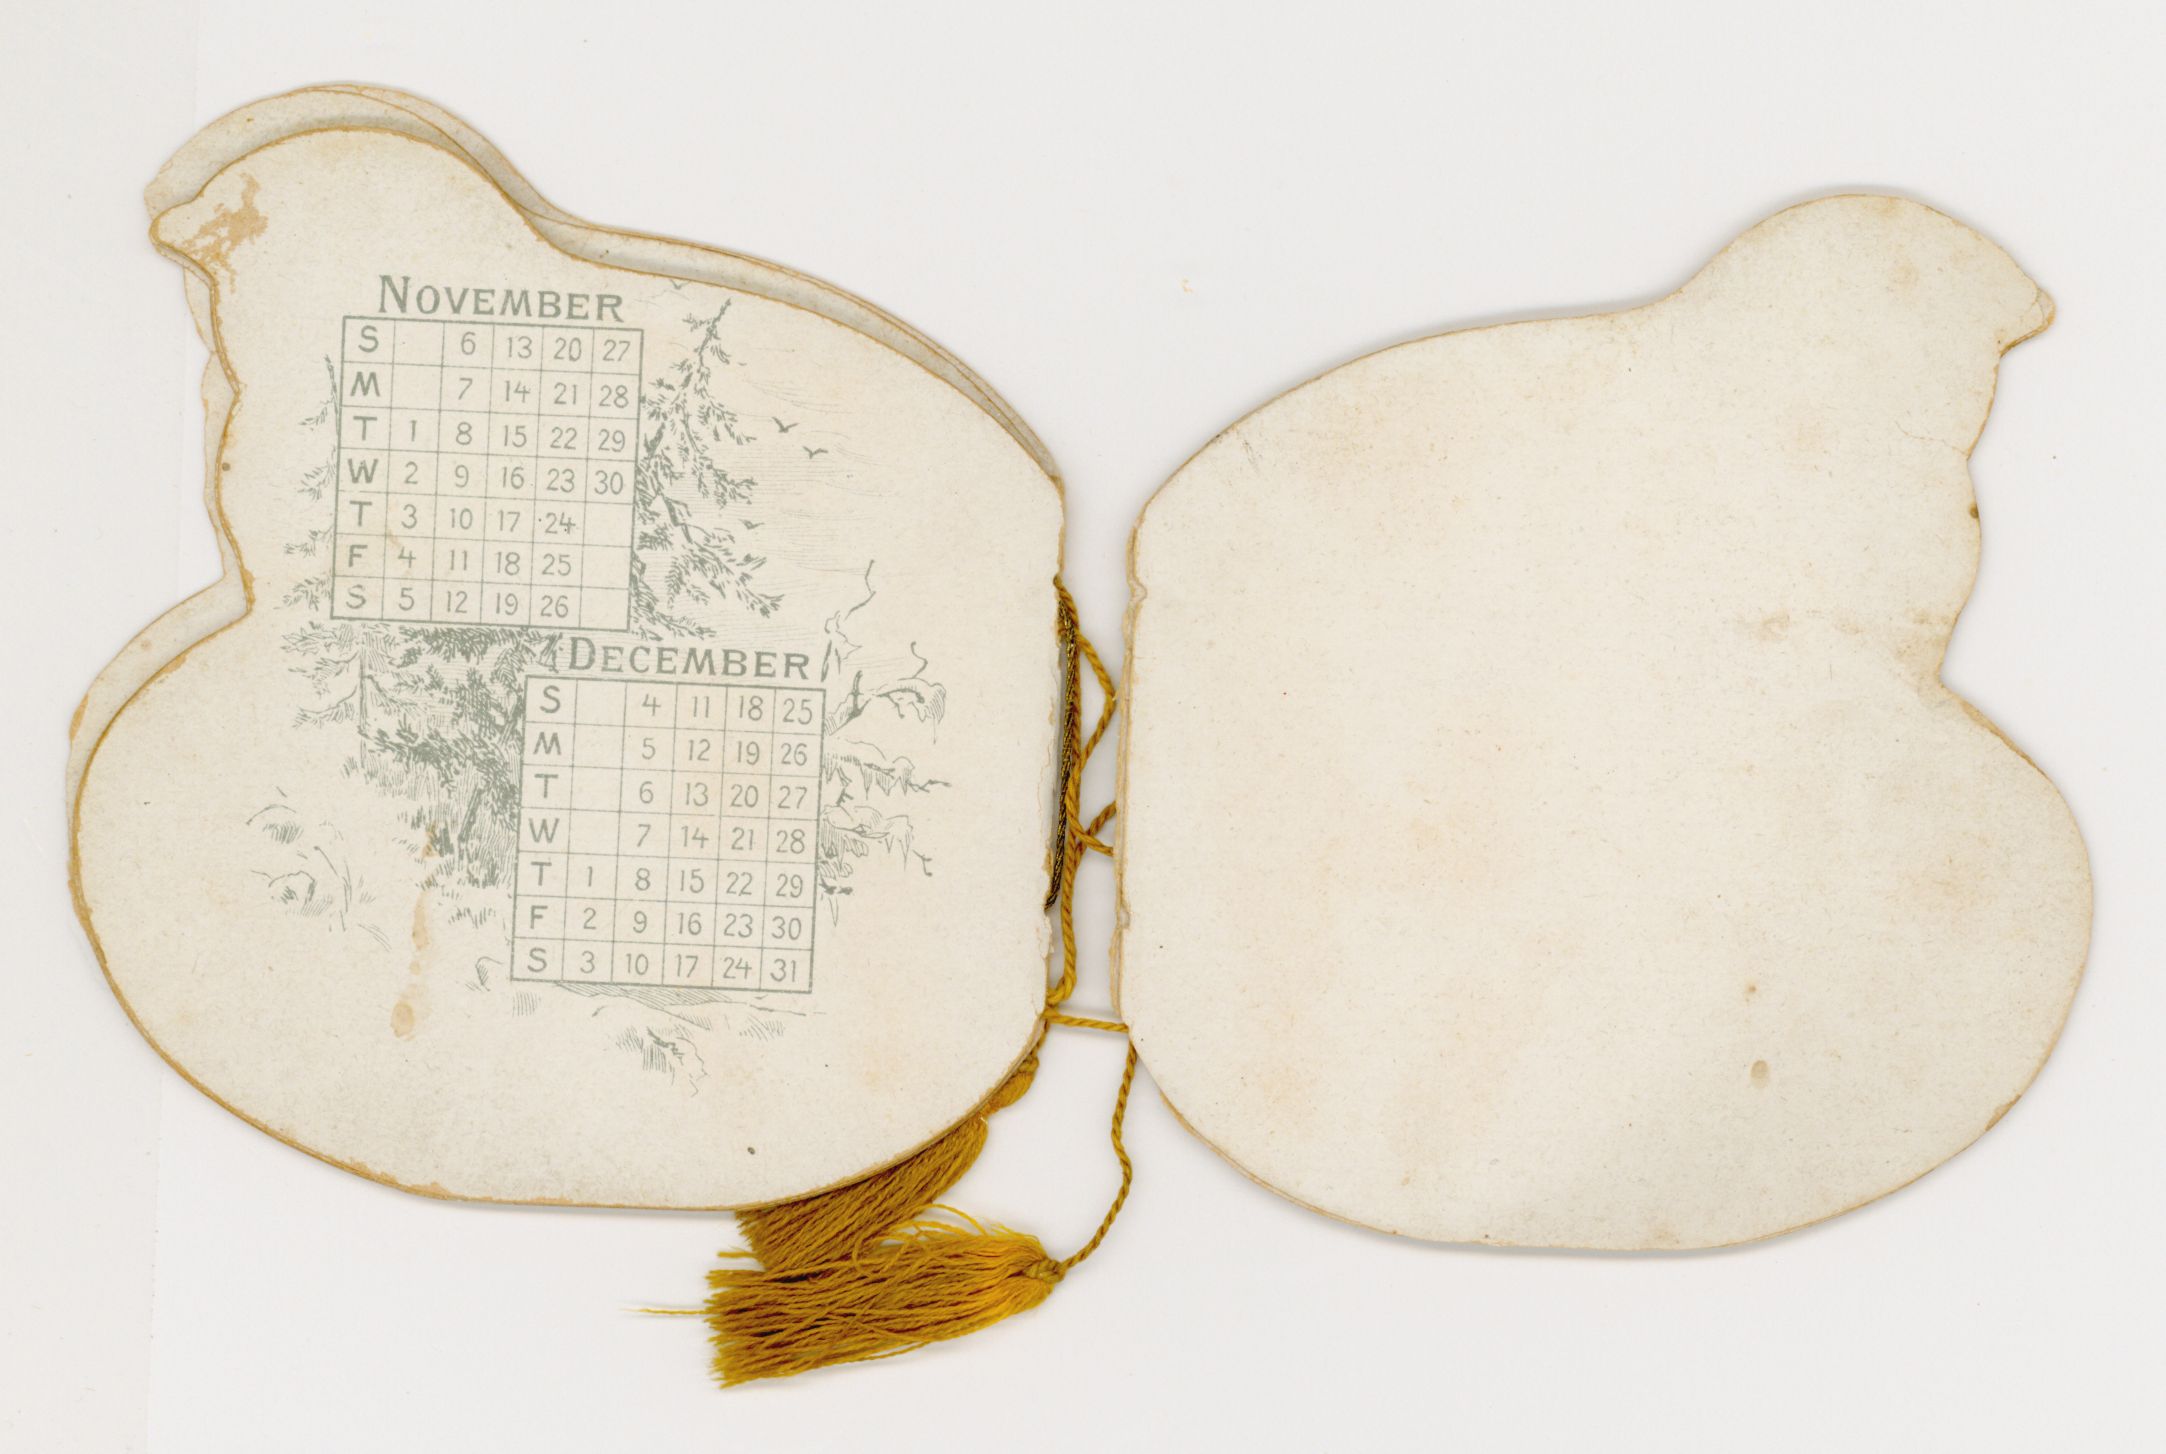 NOVEMBER
S 6 13 20 27
M 7 14 21 28
T 1 8 15 22 29
W 2 9 16 23 30
T 3 10 17 24
F 4 11 18 25
S 5 12 19 26
DECEMBER
S 4 11 18 25
M 5 12 19 26
T 6 13 20 27
W 7 14 21 28
T 1 8 15 22 29
F 2 9 16 23 30
S 3 10 17 24 31